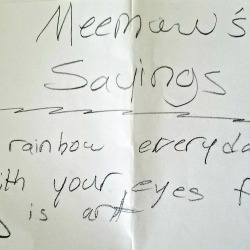 Meemaw's
Sayings
rainbow everyda
ith your eyes f
is art